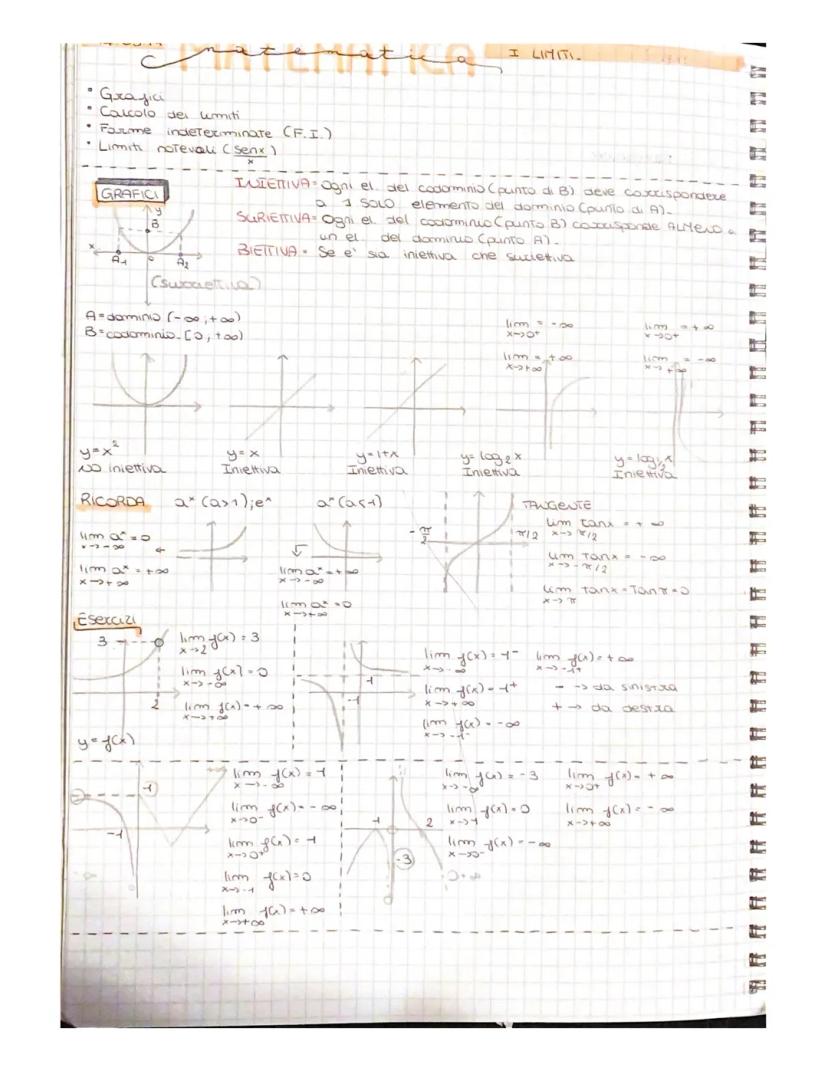 Matematica
I LIMITI.
• Grafici
• Calcolo dei limiti
• Forme indeterminate (F.I.)
• Limiti notevoli (senx/x)
GRAFICI
INIETTIVA= Ogni el. del codominio (punto di B) deve corrispondere
a 1 SOLO elemento del dominio (punto di A).
SURIETTIVA= Ogni el. del codominio (punto B) corrisponde ALMENO a
un el. del dominio (punto A).
BIETTIVA= Se e' sia iniettiva che suriettiva
y
B
x
A1
o
A2
(suriettiva)
A= dominio (-∞; +∞)
B= codominio. [0, +∞)
lim = -∞
x->0+
lim = +∞
x->+∞
lim = +∞
x->0+
lim = -∞
x->+∞
y=x²
NO iniettiva
y=x
Iniettiva
y=1+x
Iniettiva
y= log2 x
Iniettiva
y= log1/2 x
Iniettiva
RICORDA
aˣ (a>1); eˣ
aˣ (a<1)
lim aˣ = 0
x->-∞
lim aˣ = +∞
x->+∞
lim aˣ = +∞
x->-∞
lim aˣ = 0
x->+∞
-π/2
π/2
TANGENTE
lim tanx = +∞
x->π/2
lim tanx = -∞
x->-π/2
lim tanx = tanπ = 0
x->π
Esercizi
3
2
y=f(x)
lim f(x) = 3
x->2
lim f(x) = 0
x->-∞
lim f(x) = +∞
x->+∞
-1
-1
lim f(x) = -1-
x->-∞
lim f(x) = -1+
x->+∞
lim f(x) = -∞
x->-1-
lim f(x) = +∞
x->-1+
- -> da sinistra
+ -> da destra
-1
lim f(x) = 1
x->-∞
lim f(x) = -∞
x->0-
lim f(x) = 1
x->0+
lim f(x) = 0
x->-1
lim f(x) = +∞
x->+∞
-1
2
-3
lim f(x) = -3
x->-∞
lim f(x) = 0
x->-1
lim f(x) = -∞
x->0-
lim f(x) = +∞
x->0+
lim f(x) = -∞
x->+∞